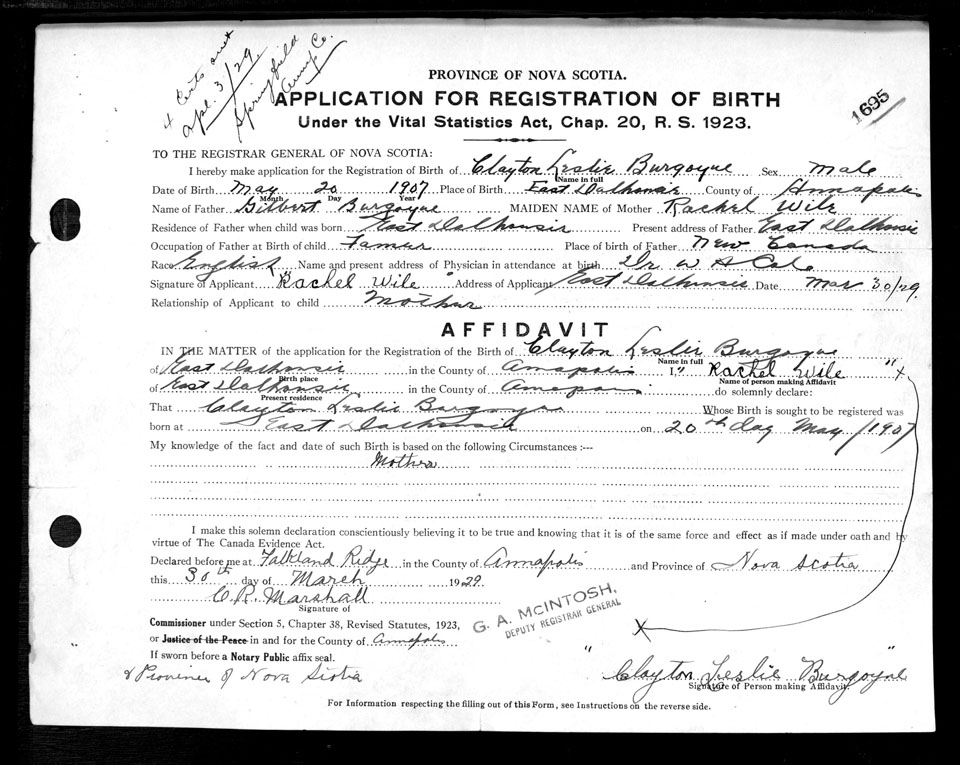 Certs sent
Apl. 3/29
Springfield
Anna Co.
PROVINCE OF NOVA SCOTIA.
APPLICATION FOR REGISTRATION OF BIRTH
Under the Vital Statistics Act, Chap. 20, R. S. 1923.
1695
TO THE REGISTRAR GENERAL OF NOVA SCOTIA:
I hereby make application for the Registration of Birth of Clayton Leslie Burgoyne Sex Male
Name in full
Date of Birth May 20 1907 Place of Birth East Dalhousie County of Annapolis
Month Day Year
Name of Father Gilbert Burgoyne MAIDEN NAME of Mother Rachel Wile
Residence of Father when child was born East Dalhousie Present address of Father East Dalhousie
Occupation of Father at Birth of child Farmer Place of birth of Father New Canada
Race English Name and present address of Physician in attendance at birth Dr. W A Cole
Signature of Applicant Rachel Wile Address of Applicant East Dalhousie Date Mar 30/29.
Relationship of Applicant to child Mother
AFFIDAVIT
IN THE MATTER of the application for the Registration of the Birth of Clayton Leslie Burgoyne
Name in full
of East Dalhousie in the County of Annapolis I," Rachel Wile " x
Birth place Name of person making Affidavit
of East Dalhousie in the County of Annapolis do solemnly declare:
Present residence
That Clayton Leslie Burgoyne Whose Birth is sought to be registered was
born at East Dalhousie on 20th day May /1907
My knowledge of the fact and date of such Birth is based on the following Circumstances :---
Mother
I make this solemn declaration conscientiously believing it to be true and knowing that it is of the same force and effect as if made under oath and by
virtue of The Canada Evidence Act.
Declared before me at Falkland Ridge in the County of Annapolis and Province of Nova Scotia
this 30th day of March 1929
C. R. Marshall
Signature of
G. A. McINTOSH,
DEPUTY REGISTRAR GENERAL
Commissioner under Section 5, Chapter 38, Revised Statutes, 1923,
or Justice of the Peace in and for the County of Annapolis
If sworn before a Notary Public affix seal.
& Province of Nova Scotia
X
" Clayton Leslie Burgoyne
Signature of Person making Affidavit.
For Information respecting the filling out of this Form, see Instructions on the reverse side.